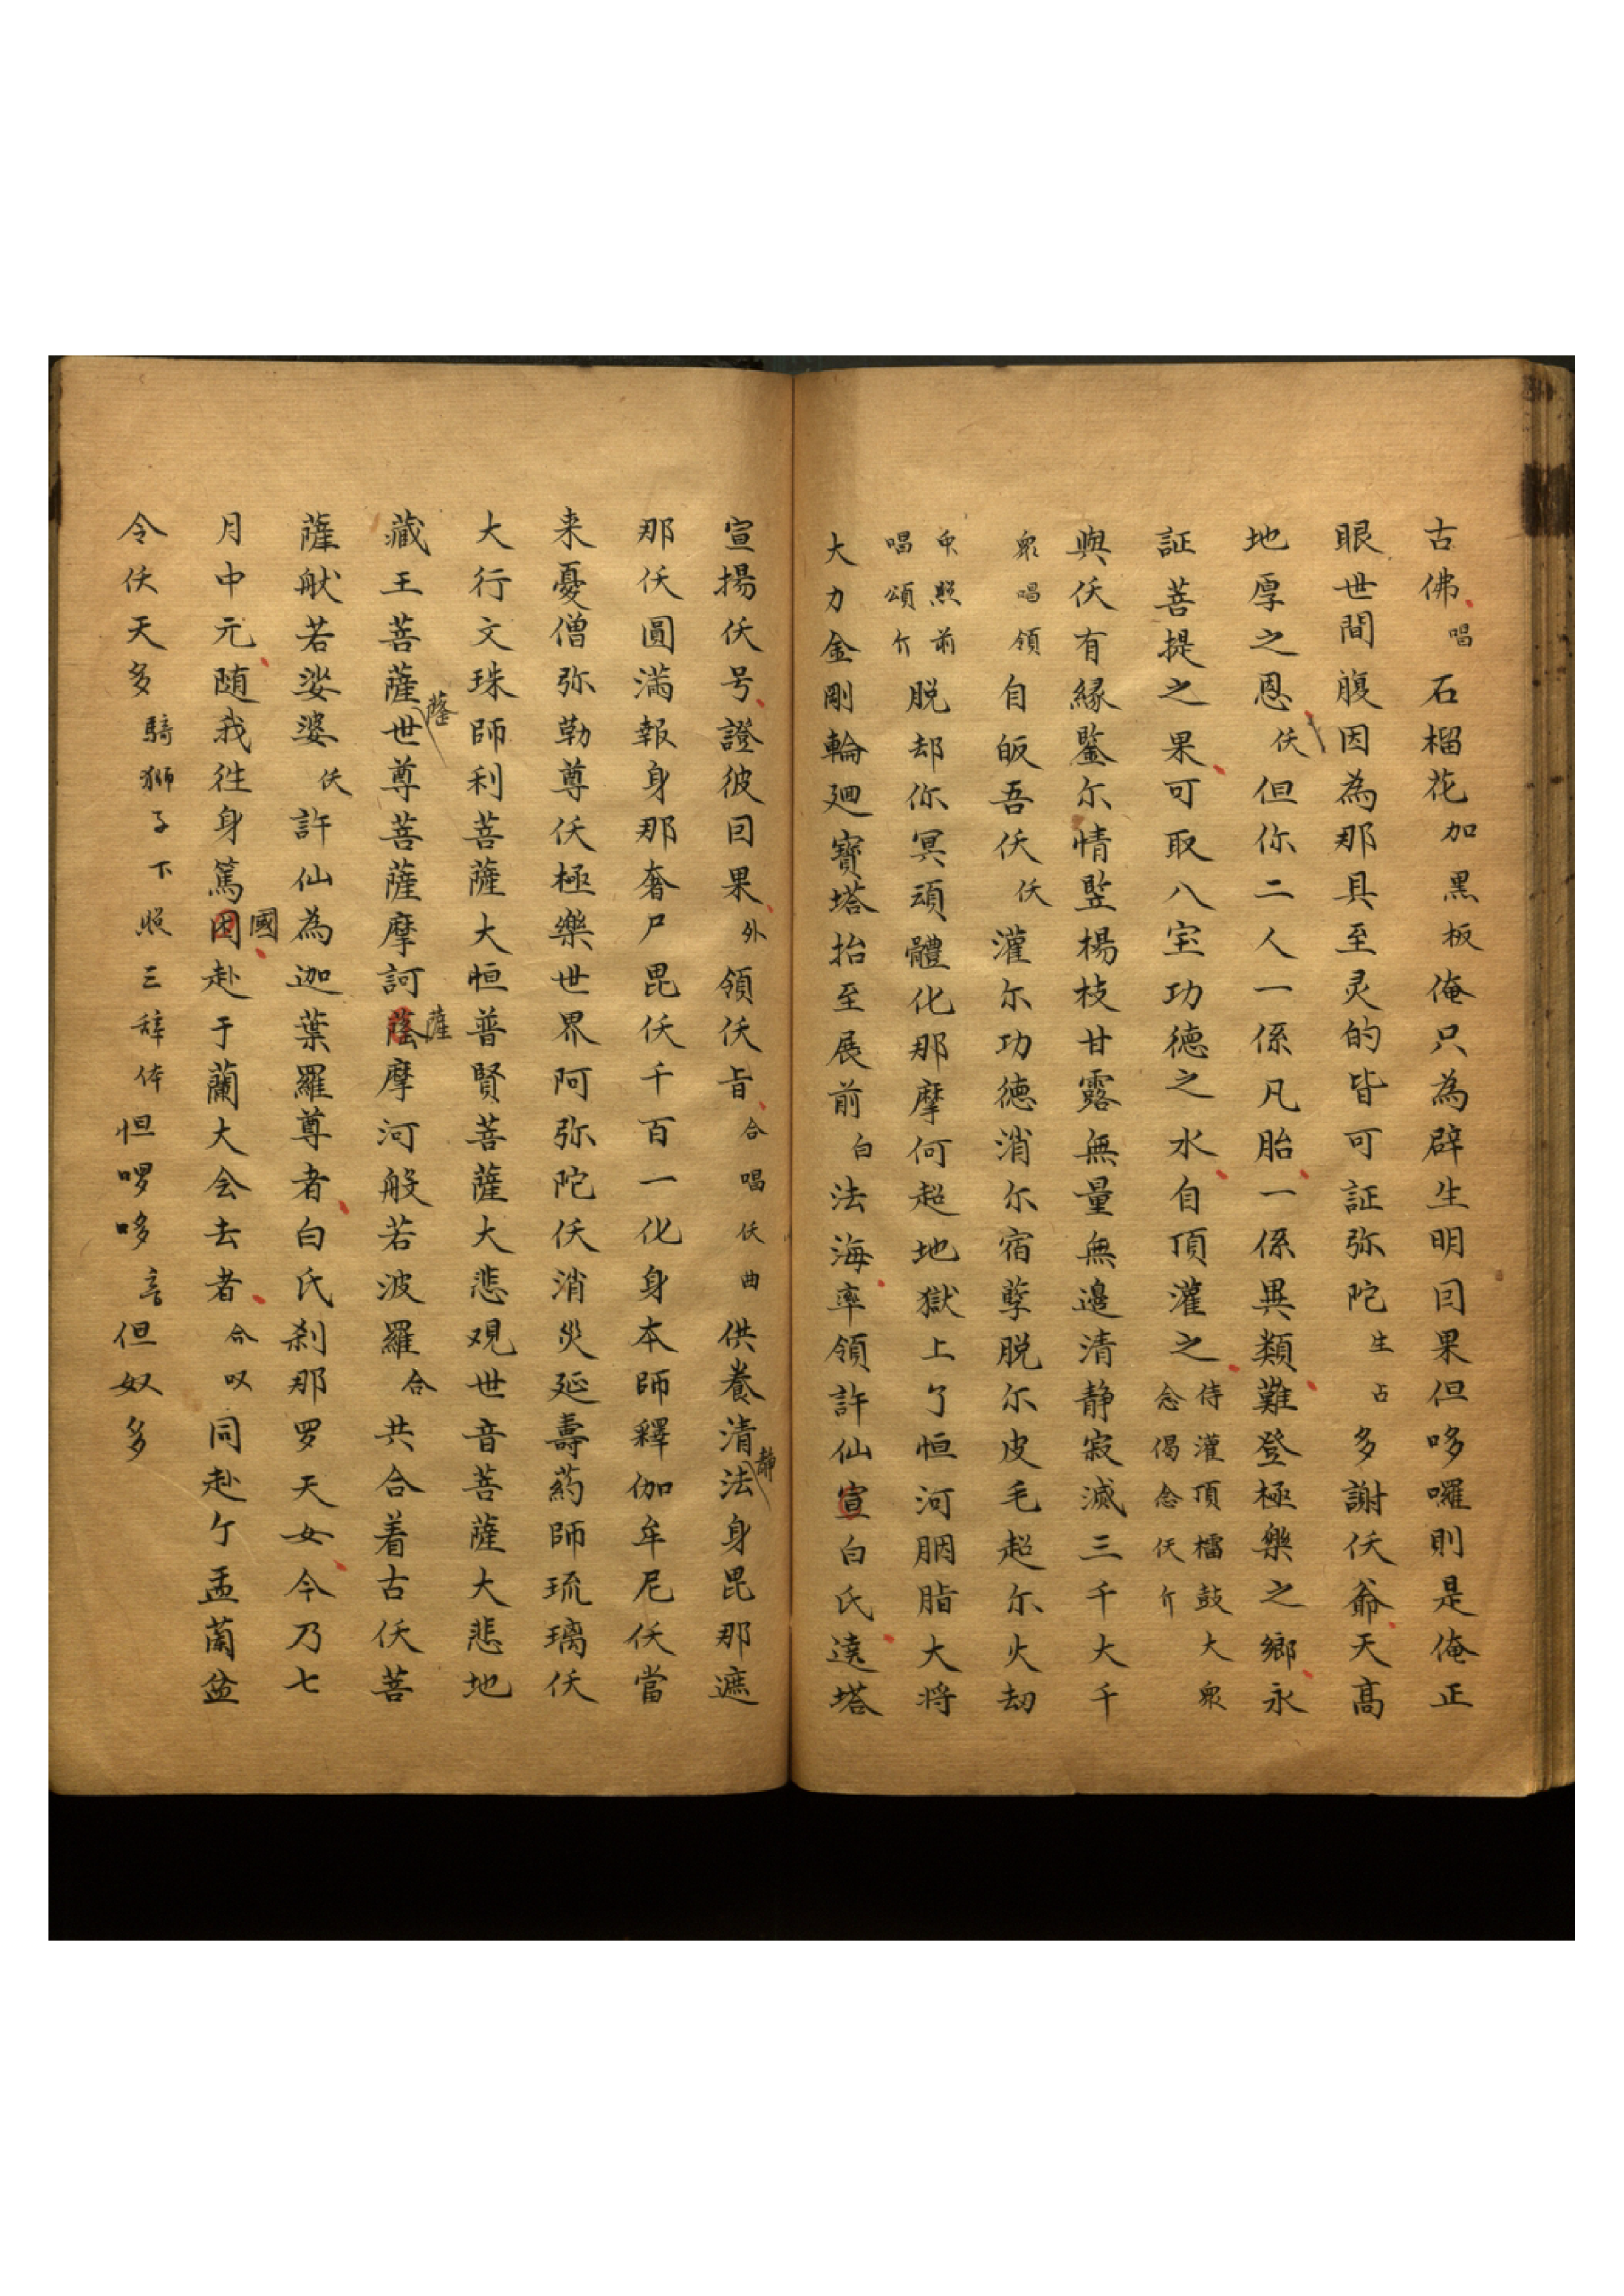 古佛唱石榴花加黑板俺只為辟生明囙果但哆囉則是俺正
眼世間腹因為那具至灵的皆可証弥陀生占多謝仸爺天高
地厚之恩仸但你二人一係凡胎一係異類難登極樂之鄉永
証菩提之果可取八宝功德之水自頂灌之侍灌頂擂鼓大衆念偈念仸介
與仸有緣鑒尔情監楊枝甘露無量無邉清静寂滅三千大千
衆唱領自皈吾仸仸灌尔功德消尔宿孽脱尔皮毛超尔火劫
照前唱頌介脱却你冥頑體化那摩何超地獄上了恒河胭脂大将
大力金剛輪廻寳塔抬至展前白法海率領許仙宣白氏遶塔
宣揚仸号證彼囙果外領仸旨合唱仸曲供養清静法身毘那遮
那仸圓滿報身那奢尸毘仸千百一化身本師釋伽牟尼仸當
来憂僧弥勒尊仸極樂世界阿弥陀仸消災延壽葯師琉璃仸
大行文珠師利菩薩大恒普賢菩薩大悲观世音菩薩大悲地
藏王菩薩薩世尊菩薩摩訶薩摩河般若波羅合共合着古仸菩
薩猷若娑婆仸許仙為迦葉羅尊者白氏刹那罗天女今乃七
月中元随我徃身篤國赴于蘭大会去者合叹同赴亇盂蘭盆
令仸天多騎獅子下照三辞体怛啰哆言但奴多